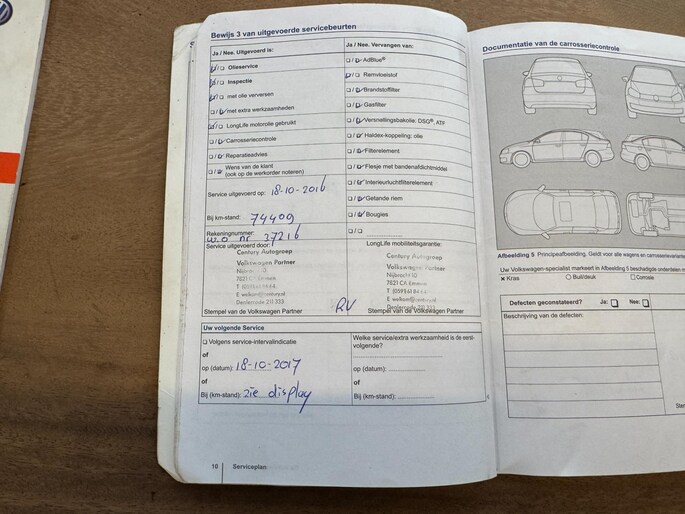 Bewijs 3 van uitgevoerde servicebeurten
Ja / Nee. Uitgevoerd is:
Olieservice
Inspectie
met olie verversen
met extra werkzaamheden
LongLife motorolie gebruikt
Carrosseriecontrole
Reparatieadvies
Wens van de klant
(ook op de werkorder noteren)
Service uitgevoerd op: 18-10-2016
Bij km-stand: 74409
Rekeningnummer:
w.o nr 37216
Service uitgevoerd door:
Century Autogroep
Volkswagen Partner
7821 CA Emmen
Dealercode 211 333
Stempel van de Volkswagen Partner
RV
Ja / Nee. Vervangen van:
AdBlue®
Remvloeistof
Brandstoffilter
Gasfilter
Versnellingsbakolie: DSQ®, ATF
Haldex-koppeling: olie
Filterelement
Flesje met bandenafdichtmiddel
Interieurluchtfilterelement
Getande riem
Bougies
LongLife mobiliteitsgarantie:
Century Autogroep
Volkswagen Partner
7821 CA Emmen
Stempel van de Volkswagen Partner
Uw volgende Service
Volgens service-intervalindicatie
of
op (datum): 18-10-2017
of
Bij (km-stand): zie display
Welke service/extra werkzaamheid is de eerst
volgende?
op (datum):
of
Bij (km-stand):
10 Serviceplan
Documentatie van de carrosseriecontrole
Afbeelding 5 Principeafbeelding. Geldt voor alle wagens en
Uw Volkswagen-specialist markeert in Afbeelding 5 beschadigde onderdelen
Kras Buil/deuk Corrosie
Defecten geconstateerd? Ja: Nee:
Beschrijving van de defecten: